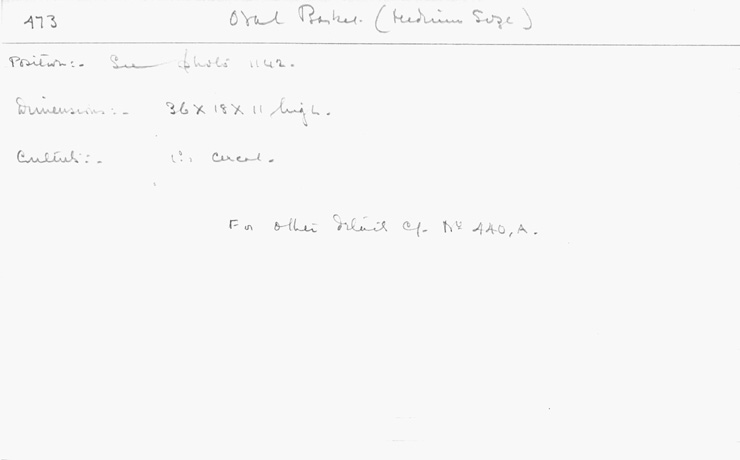 473 Oval Basket. (Medium Size)
Position:- See photo 1142.
Dimensions:- 36 X 18 X 11 high.
Contents:- cereal.
For other detail cf. Nº 440, A.